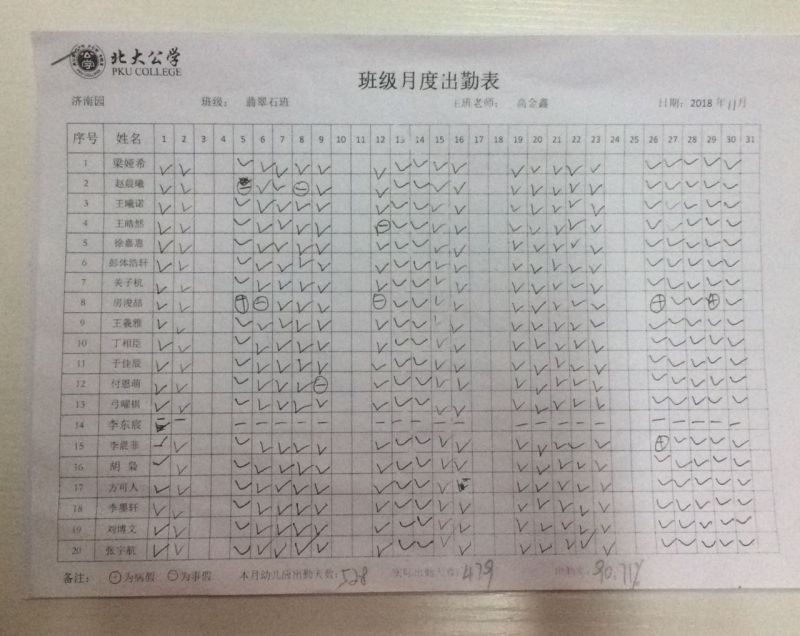 北大公学
PKU COLLEGE
班级月度出勤表
济南园 班级： 翡翠石班 主班老师： 高金鑫 日期：2018年11月
序号 姓名 1 2 3 4 5 6 7 8 9 10 11 12 13 14 15 16 17 18 19 20 21 22 23 24 25 26 27 28 29 30 31
1 梁娅希
2 赵晨曦
3 王曦诺
4 王皓然
5 徐嘉惠
6 彭体浩轩
7 关子杭
8 房浚喆
9 王羲雅
10 丁相臣
11 于佳宸
12 付恩萌
13 弓曜棋
14 李东宸
15 李晨菲
16 胡枭
17 方可人
18 李墨轩
19 刘博文
20 张宇航
备注： 为病假 为事假 本月幼儿应出勤天数：528 实际出勤天数：479 出勤率：90.71%